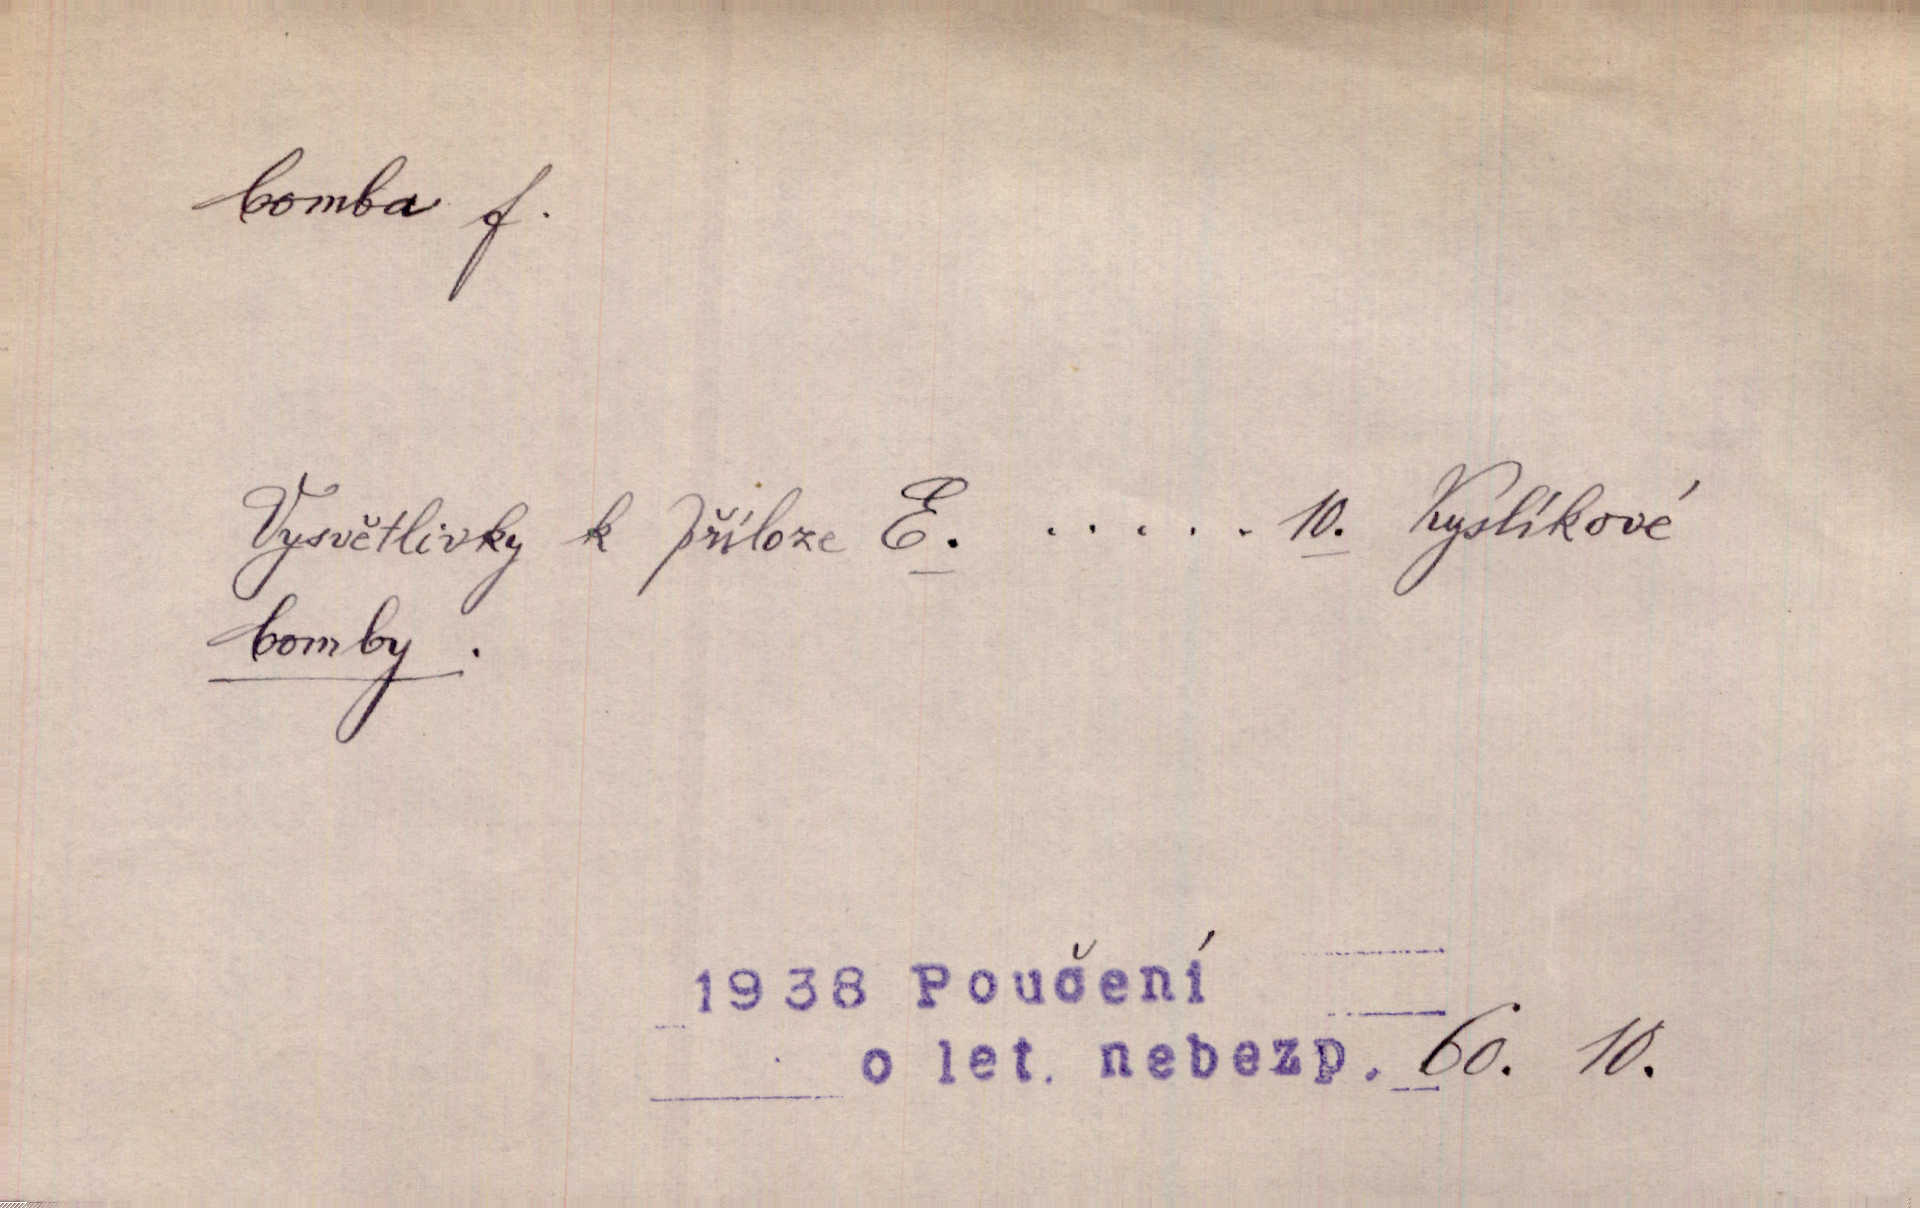 bomba f.
Vysvětlivky k příloze E. ..... 10. Kyslíkové
bomby.
1938 Poučení
o let. nebezp. 60. 10.